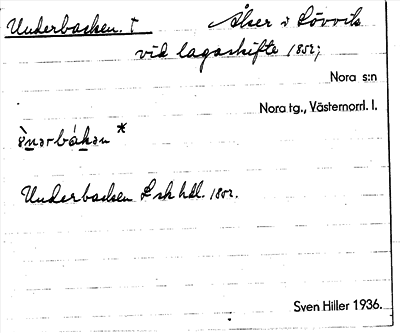 Underbacken. † Åker i Lövvik
vid lagaskifte 1852;
Nora s:n
Nora tg., Västernorrl. l.
Underbacken L sk hdl. 1852.
Sven Hiller 1936.